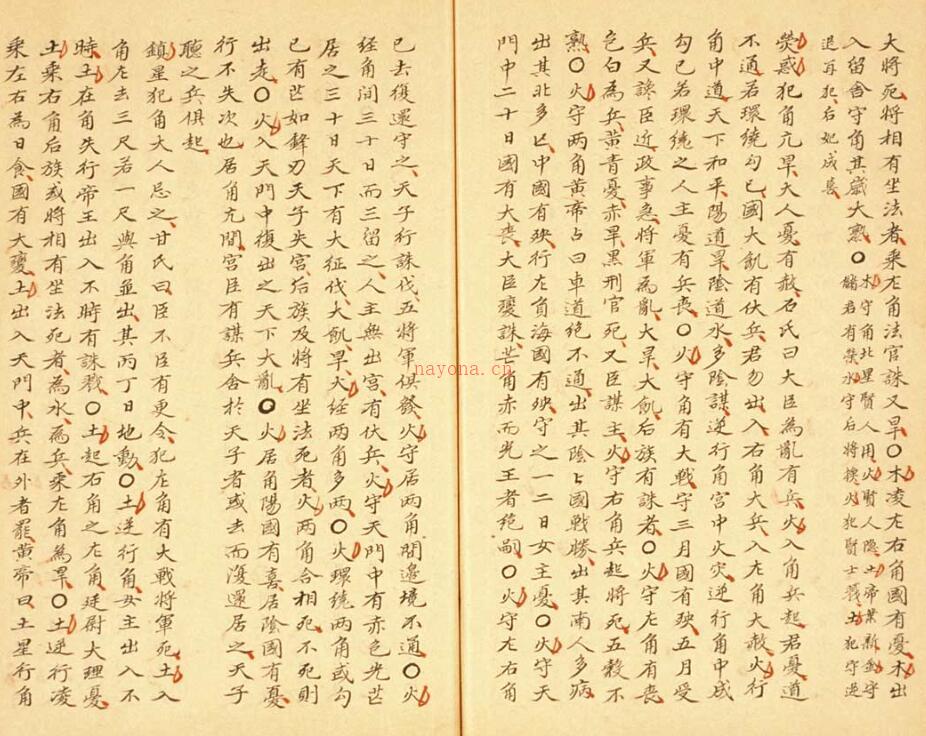 大將死將相有坐法者乘左角法官誅又旱〇木凌左右角國有憂木出
入留舍守角其歲大熟〇木守角北星賢人用火賢人隱土帝業新金守
儲君有榮水守后將撲火犯賢士戮土犯守逆
退再犯右妃成喜
熒惑犯角亢旱大人憂有赦石氏曰大臣為亂有兵火入角兵起君憂道
不通若環繞勾巳國大飢有伏兵君勿出入右角大兵入左角大赦火行
角中道天下和平陽道旱陰道水多陰謀逆行角宮中火灾逆行角中成
勾巳若環繞之人主憂有兵喪〇火守角有大戰守三月國有殃五月受
兵又讒臣近政事急將軍為亂大旱大飢后族有誅者〇火守左角有喪
色白為兵黃青憂赤旱黑刑官死又臣謀主火守右角兵起將死五穀不
熟〇火守两角黃帝占曰車道绝不通出其陰ヒ國戰勝出其南人多病
出其北多亡中國有殃行左角海國有殃守之一二日女主憂〇火守天
門中二十日國有大喪大臣變誅芒角赤而光王者绝嗣〇火守左右角
已去復還守之天子行誅伐五將軍俱發火守居两角間邊境不通〇火
经角間三十日而三留之人主無出宮有伏兵火守天門中有赤色光芒
居之三十日天下有大征伐大飢旱火经两角多两〇火環绕两角或勾
已有芒如鋒刃天子失宮后族及將有坐法死者火两角合相死不死則
出走〇火入天門中復出之天下大亂〇火居角陽國有喜居陰國有憂
行不失次也居角亢間宮臣有謀兵舍於天子者或去而復還居之天子
聽之兵俱起
鎮星犯角大人忌之甘氏曰臣不臣有更令犯左角有大戰將軍死土入
角左去三尺若一尺與角並出其丙丁日地動〇土逆行角女主出入不
時土在角失行帝王出入不時有誅戮〇土起右角之左角廷尉大理憂
土乘右角后族或將相有坐法死者為水為兵乘左角為旱〇土逆行凌
乘左右為日食國有大變土出入天門中兵在外者罷黃帝曰土星行角
nayona.cn